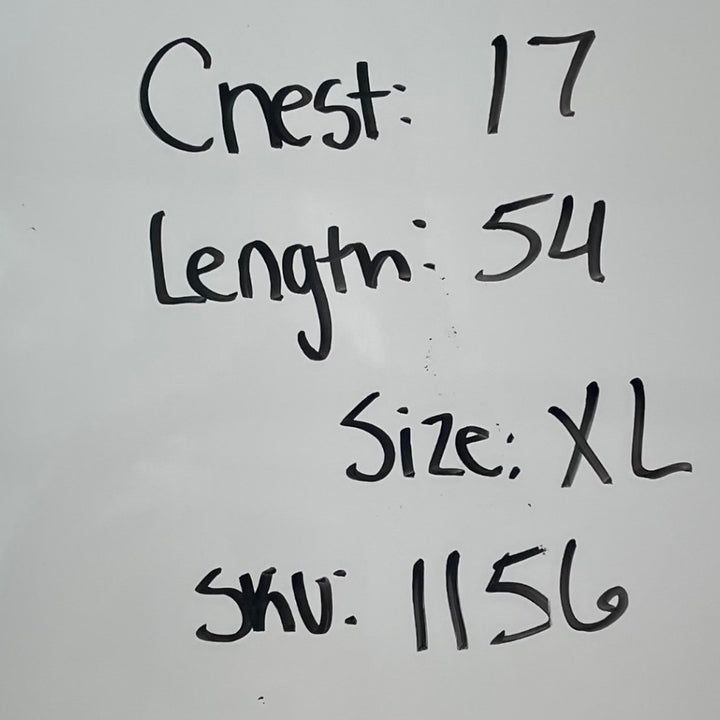 Chest: 17
Length: 54
Size: XL
SKU: 1156